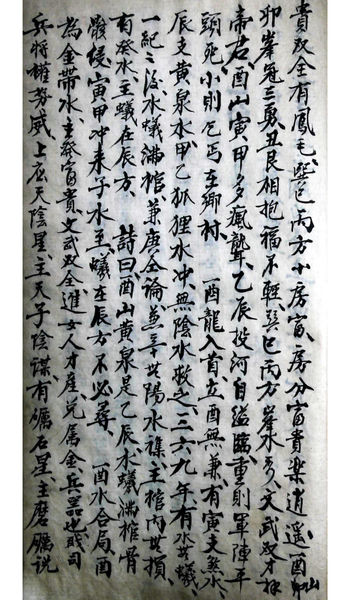 貴双全有鳳毛巽巳丙方小房富房分富貴樂逍遥一酉山
卯峯冠三勇丑艮相抱福不輕巽巳丙方峯水秀文武双才扶
帝君酉山寅甲多瘋聾乙辰投河自縊臨重則軍陣平
頭死小則乞丐在鄉村一酉龍入首立酉無兼有寅支煞水
辰支黄泉水甲乙狐狸水冲無陰水救之三六九年有水其蟻
一紀之後水蟻滿棺兼庚仝論兼辛其陽水雜主棺内其損
有癸水主蟻在辰方詩曰酉山黄泉是乙辰水蟻滿棺骨
骸侵寅甲冲来子水至蟻在辰方不必尋一酉水合局酉
為金帶水主發富貴文武双全進女人才産兑属金兵器也或司
兵将權势威上应天陰星主天子陰謀有礪石星主磨礪説